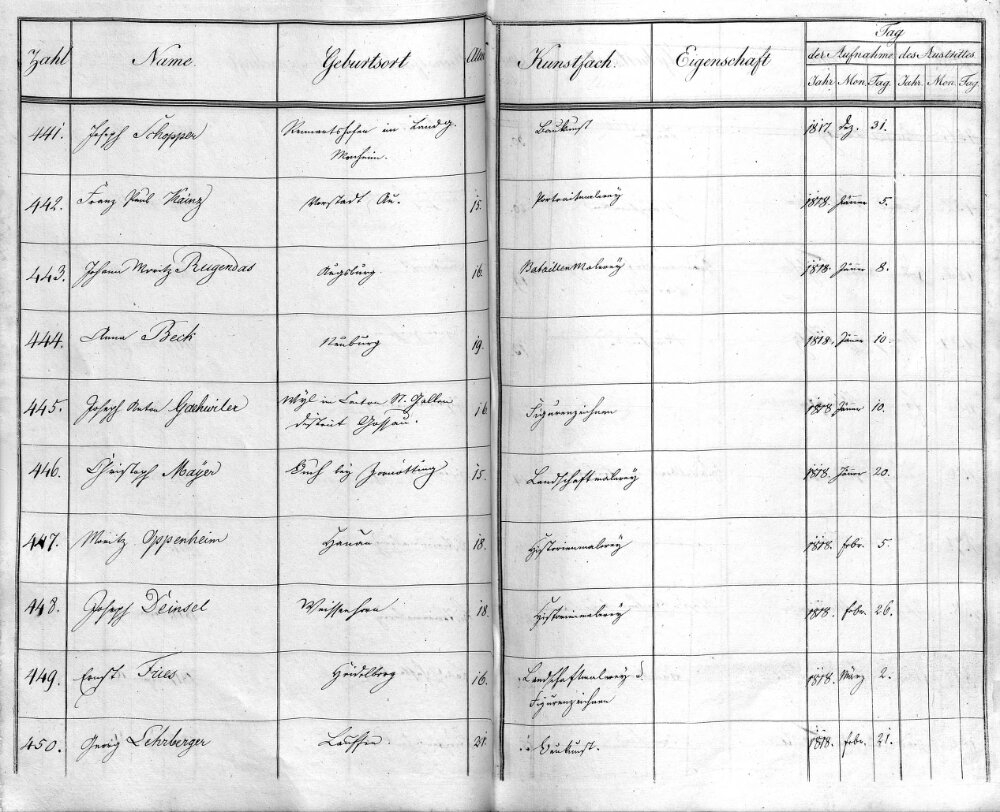 Zahl Name Geburtsort Alter Kunstfach Eigenschaft Tag
der Aufnahme des Austrittes
Jahr Mon. Tag. Jahr. Mon. Tag.
441. Joseph Schopper Rennertshofen im Landg. Baukunst 1817. Dez. 31.
Monheim.
442. Franz Paul Kainz Vorstadt Au. 15. Portraitmalerey 1818. Jäner 5.
443. Johann Moritz Rugendas Augsburg. 16. Bataillen Malerey 1818. Jäner 8.
444. Anna Beck Neuburg 19. 1818. Jäner 10.
445. Joseph Anton Gachwiler Wyl in Canton St. Gallen 16 Figurenzeichnen 1818 Jäner 10.
district Gossau.
446. Christoph Mayer bey 15. Landschaftmalerey 1818. Jäner 20.
447. Moritz Oppenheim Hanau 18. Historienmalerey 1818. febr. 5.
448. Joseph Deinsel Weissenhorn 18. Historienmalerey 1818. febr. 26.
449. Ernst Fries Heidelberg 16. Landschaftmalerey &
Figurenzeichnen 1818. März 2.
450. Georg Lehrberger 21. Baukunst. 1818. febr. 21.